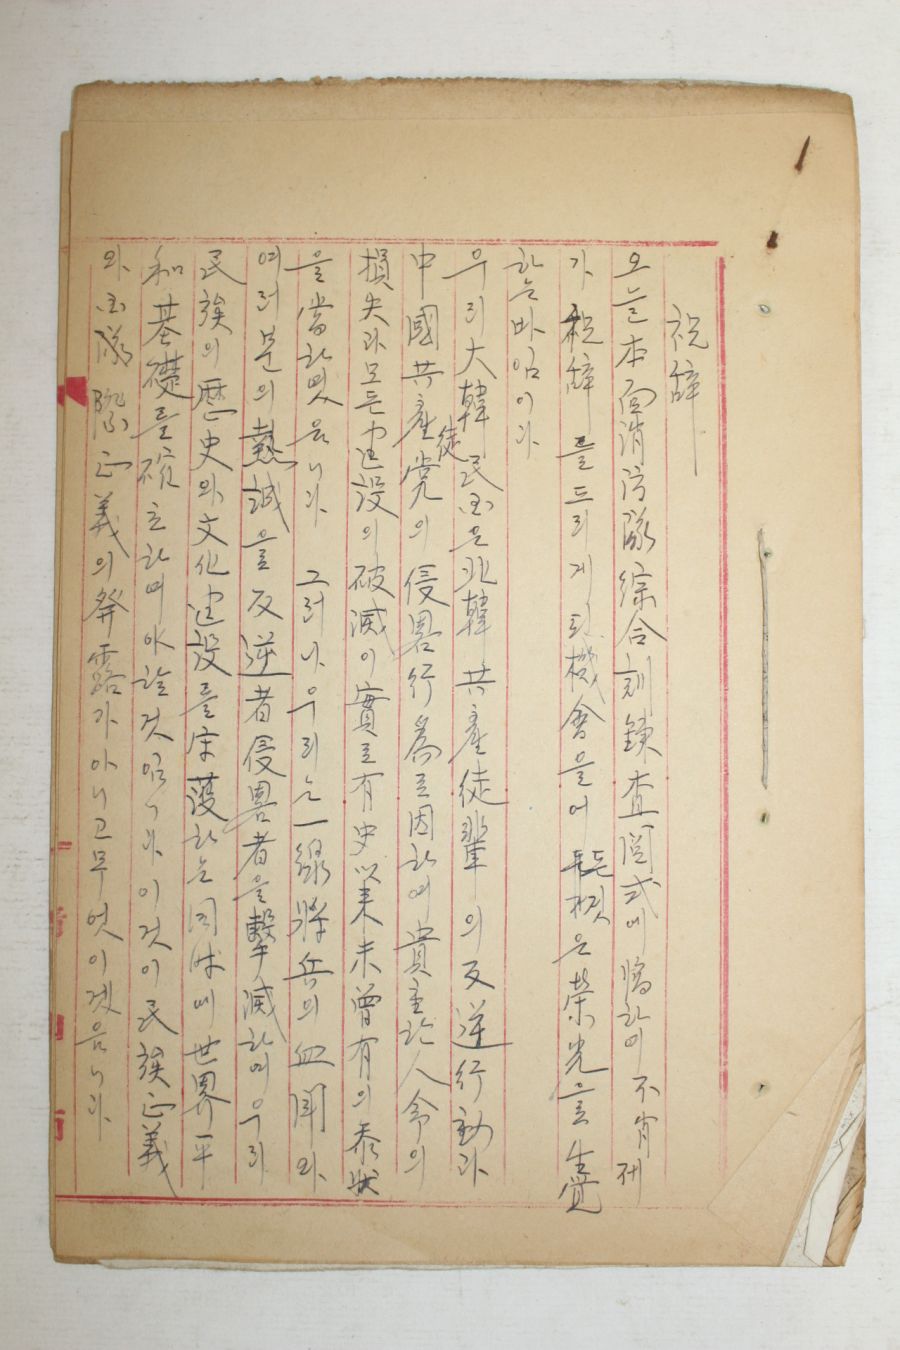 祝辞
오늘本面消防隊綜合訓鍊査閲式에臨하야 不肖제
가 祝辞를드리게된機會을어더됨은榮光을生覺
하는바임이다
우리大韓民国은北韓共産徒輩의反逆行動과
中國共産党徒의侵畧行爲로因하여貴重한人命의
損失과모든建設의破滅이實로有史以来未曾有의慘状
을當하엿읍니다 그러나우리는一線將兵의血闘와
여러분의熱誠을反逆者侵畧者을擊滅하여우리
民族의歴史와文化建設를守護하는同時에世界平
和基礎를確立하여야할것임니다이것이民族正義
와国際正義의發露가아니고무엇이겠음니가